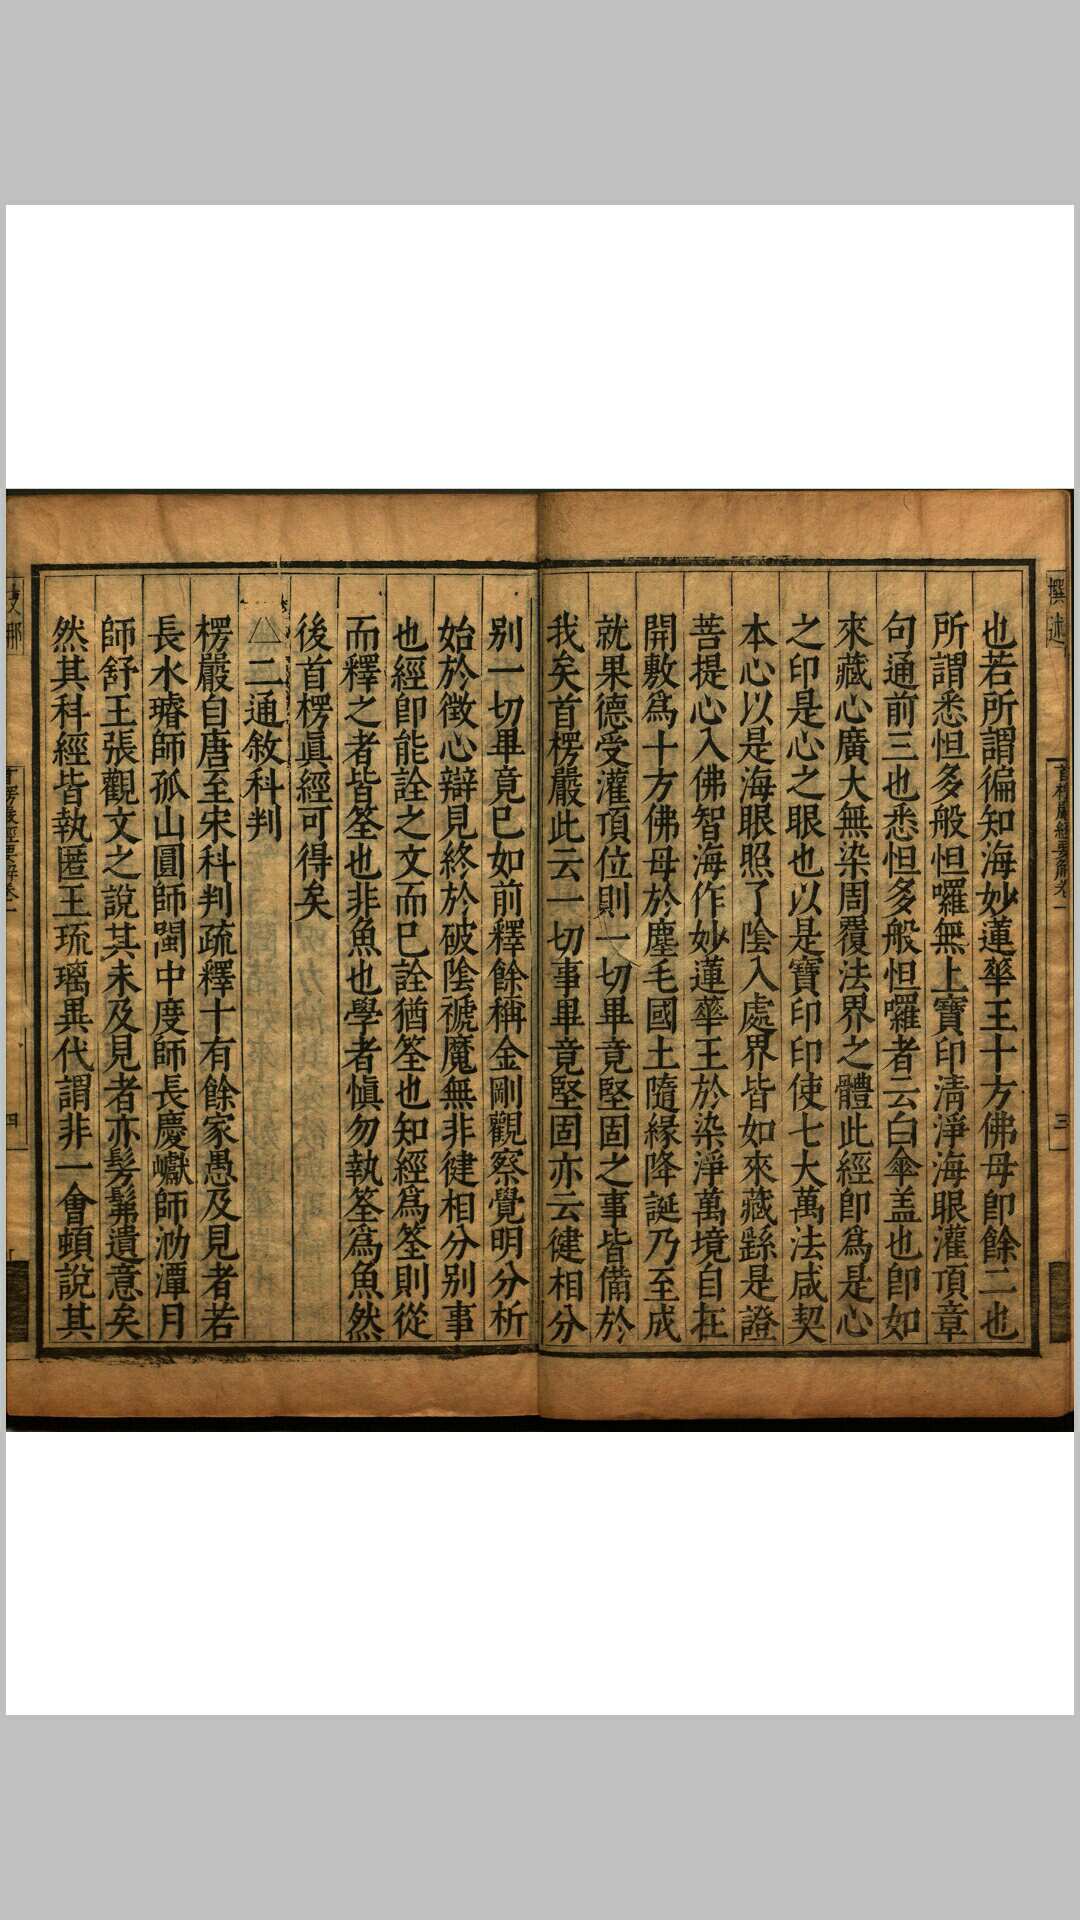 撰述
首楞嚴經要解卷一
三
也若所謂徧知海妙蓮華王十方佛母即餘二也
所謂悉怛多般怛囉無上寶印清淨海眼灌頂章
句通前三也悉怛多般怛囉者云白傘盖也即如
來藏心廣大無染周覆法界之體此經即爲是心
之印是心之眼也以是寶印印使七大萬法咸契
本心以是海眼照了陰入處界皆如來藏繇是證
菩提心入佛智海作妙蓮華王於染淨萬境自在
開敷爲十方佛母於塵毛國土隨緣降誕乃至成
就果德受灌頂位則一切畢竟堅固之事皆備於
我矣首楞嚴此云一切事畢竟堅固亦云健相分
別一切畢竟已如前釋餘稱金剛觀察覺明分析
始於徵心辯見終於破陰褫魔無非健相分別事
也經即能詮之文而已詮猶筌也知經爲筌則從
而釋之者皆筌也非魚也學者慎勿執筌爲魚然
後首楞眞經可得矣
△二通敘科判
楞嚴自唐至宋科判疏釋十有餘家愚及見者若
長水璿師孤山圓師閩中度師長慶巘師泐潭月
師舒王張觀文之說其未及見者亦髣髴遺意矣
然其科經皆執匿王琉璃異代謂非一會頓說其
四